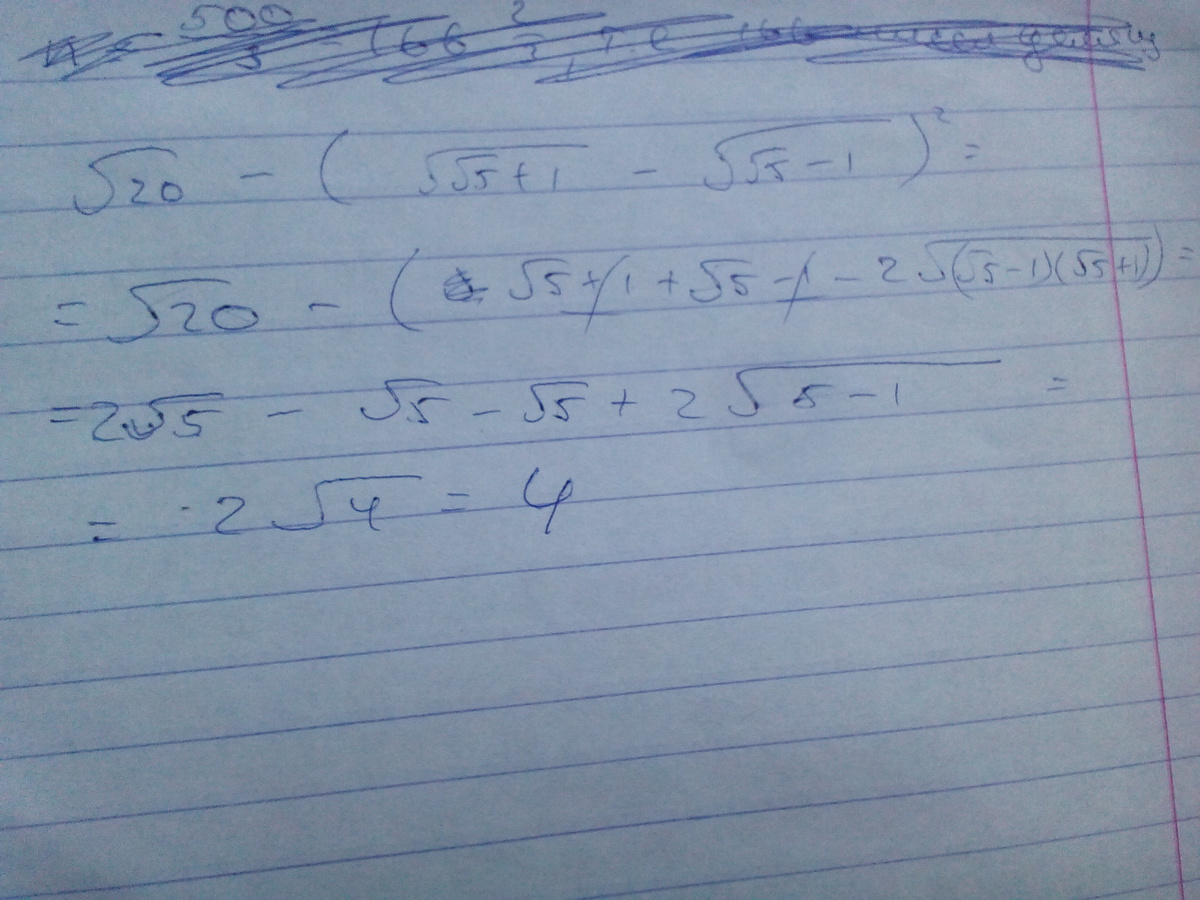 500
√20 - (√(√5+1) - √(√5-1))² =
= √20 - (√5+1+√5-1-2√((√5-1)(√5+1))) =
= 2√5 - √5 - √5 + 2√(5-1) =
= 2√4 = 4